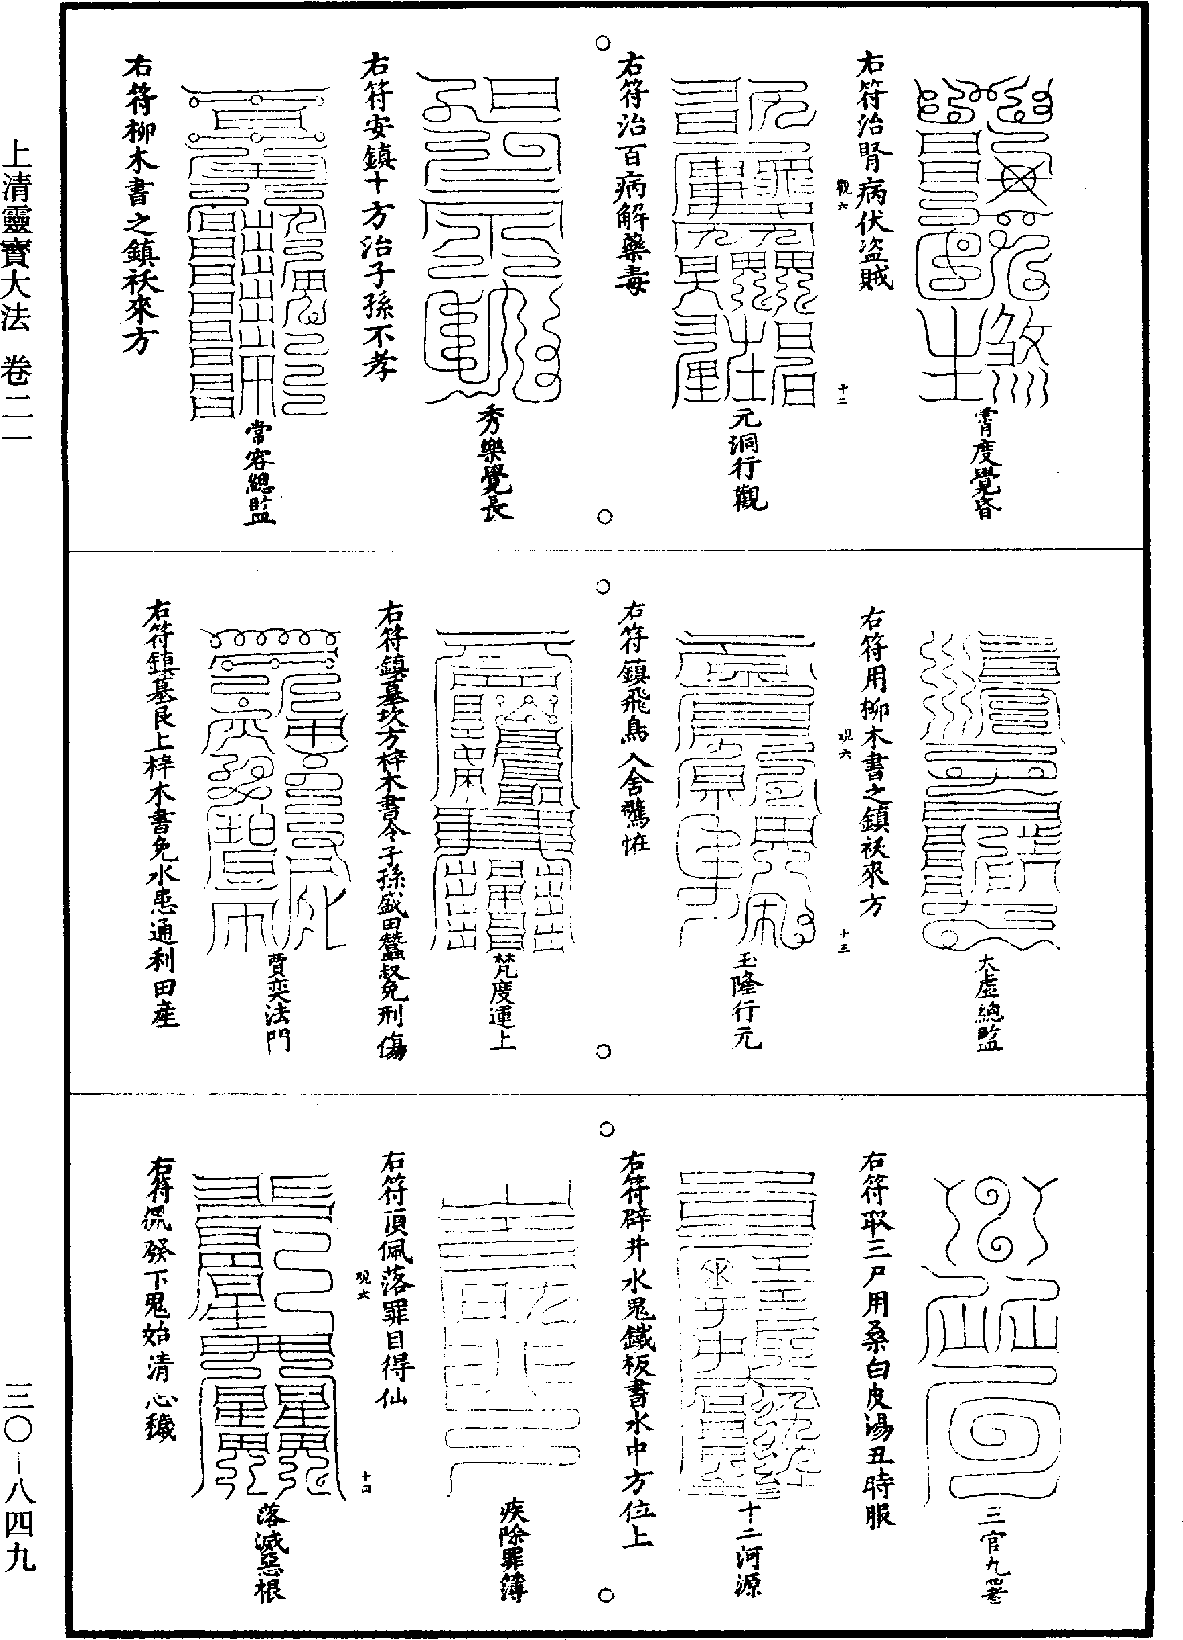 上清靈寶大法 卷二一
三〇—八四九
霄度覺昏
右符治腎病伏盜賊
觀六
十二
元洞行觀
右符治百病解藥毒
秀樂覺長
右符安鎮十方治子孫不孝
常容總監
右符柳木書之鎮祅來方
太虛總監
右符用柳木書之鎮祅來方
观六
十三
玉隆行元
右符鎮飛鳥入舍驚怪
梵度運上
右符鎮墓坎方梓木書令子孫盛田蠶叔免刑傷
賈奕法門
右符鎮墓艮上梓木書免水患通利田產
三官九署
右符取三尸用桑白皮湯丑時服
十二河源
右符辟井水鬼鐵板書水中方位上
疾除罪簿
右符頂佩落罪目得仙
观六
十四
落滅惡根
右符佩發下鬼始清心穢